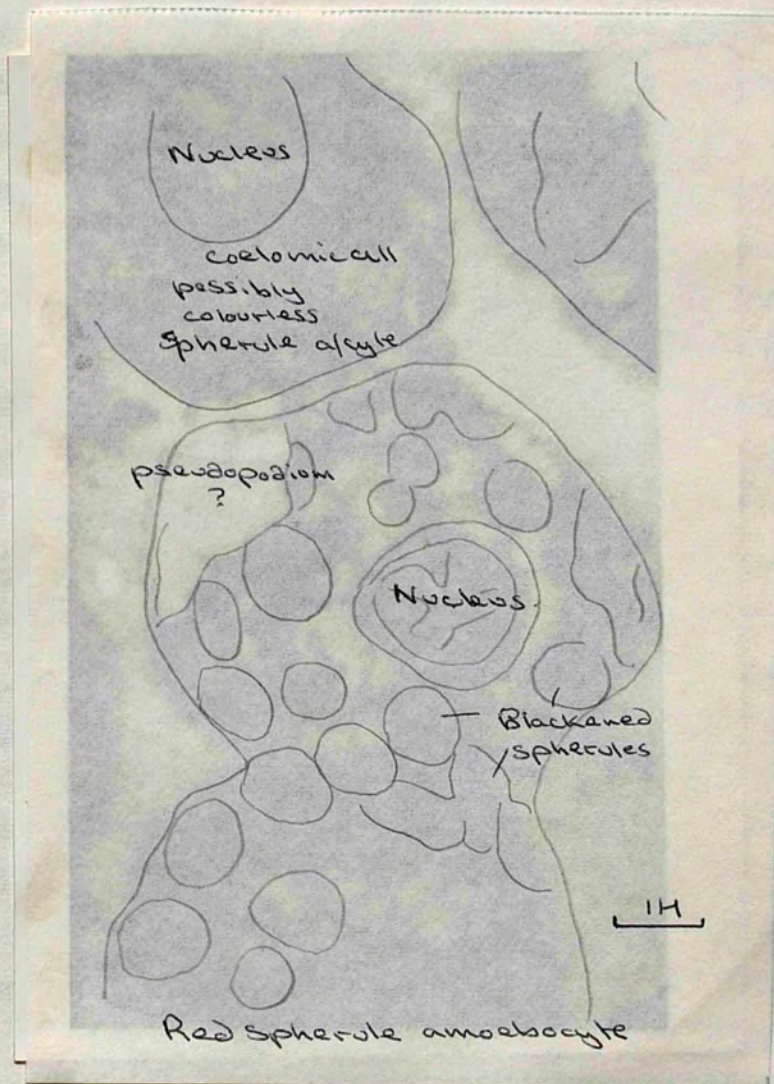 Nucleus
coelomic cell
possibly
colourless
Spherule a/cyte
pseudopodium
?
Nucleus
Blackened
spherules
1H
Red spherule amoebocyte